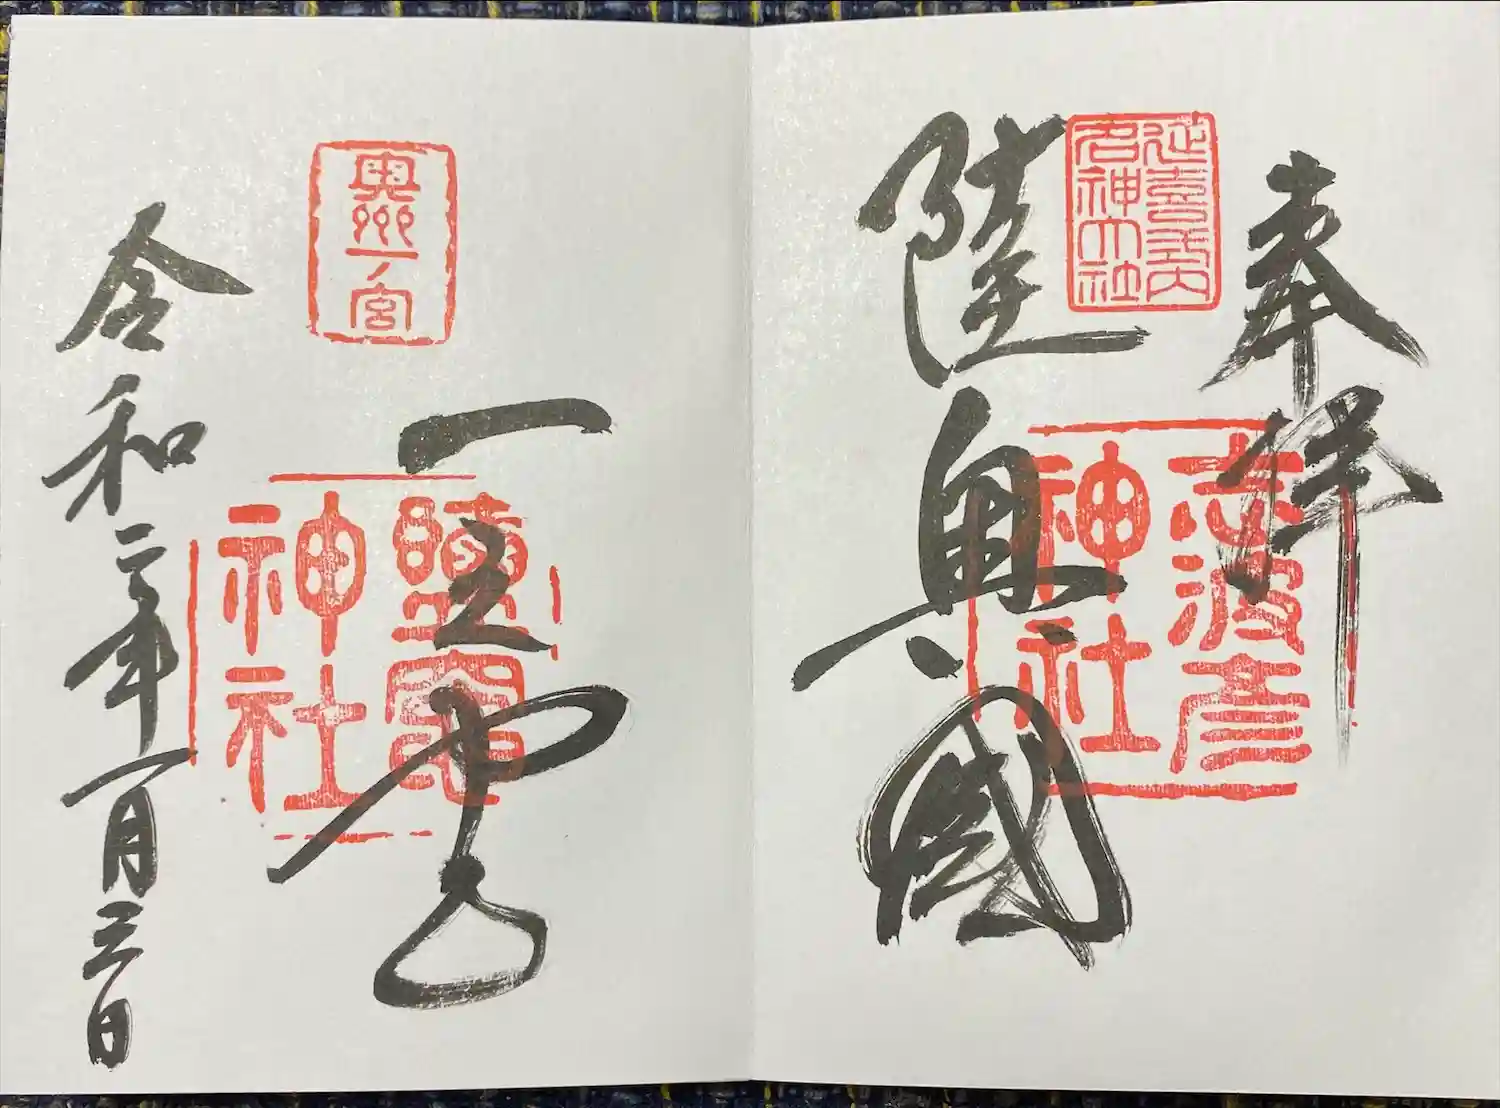 奉拝
延喜式内
名神大社
志波彦
神社
陸奥國
奥州一ノ宮
一之宮
鹽竈
神社
令和二年一月三日